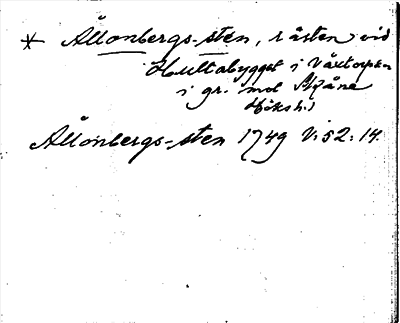 * Ållonbergs-sten, råsten vid
Hultabygget i Våxtorps sn
i gr. mot Skåne
Höks hd
Ållonbergs-sten 1749 V: 52: 14.